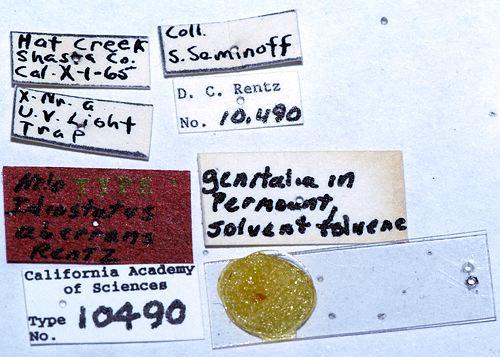 Hat Creek
Shasta Co.
Cal. X-1-65
X-Nr. a
U.V. Light
Trap
Coll.
S. Seminoff
D. C. Rentz
No. 10,490
Holo TYPE
Idiostatus
aberrans
RENTZ
genitalia in
Permount,
solvent toluene
California Academy
of Sciences
Type
No. 10490